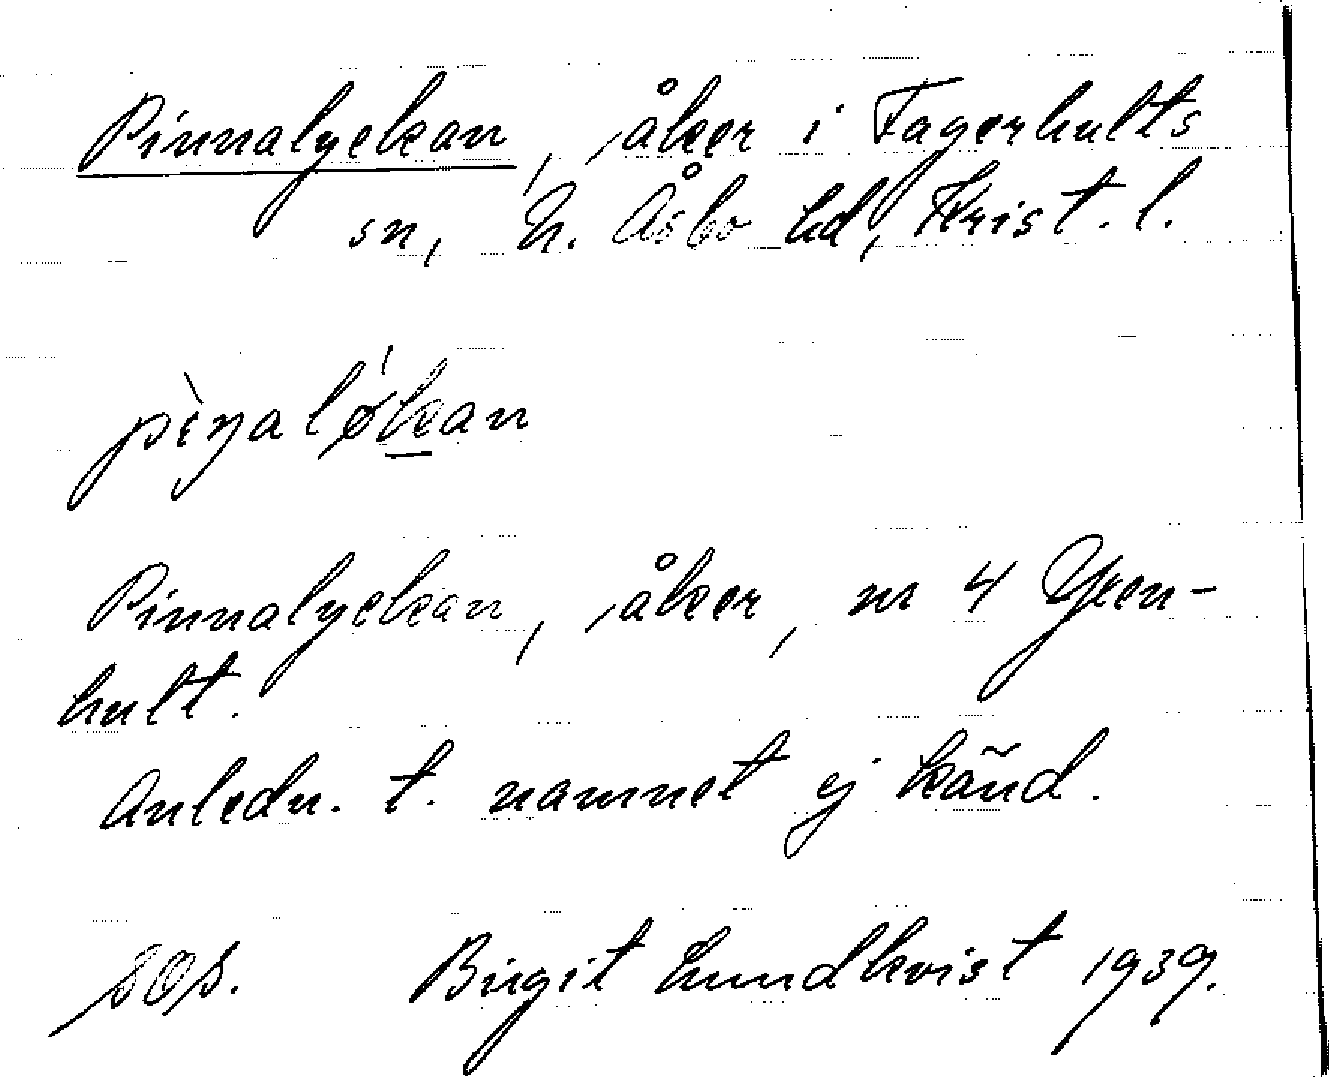 Pinnalyckan, åker i Fagerhults
sn, N. Åsbo hd, Krist. l.
Pinnalyckan, åker, nr 4 Yxen-
hult.
Anledn. t. namnet ej känd.
Birgit Lundkvist 1939.